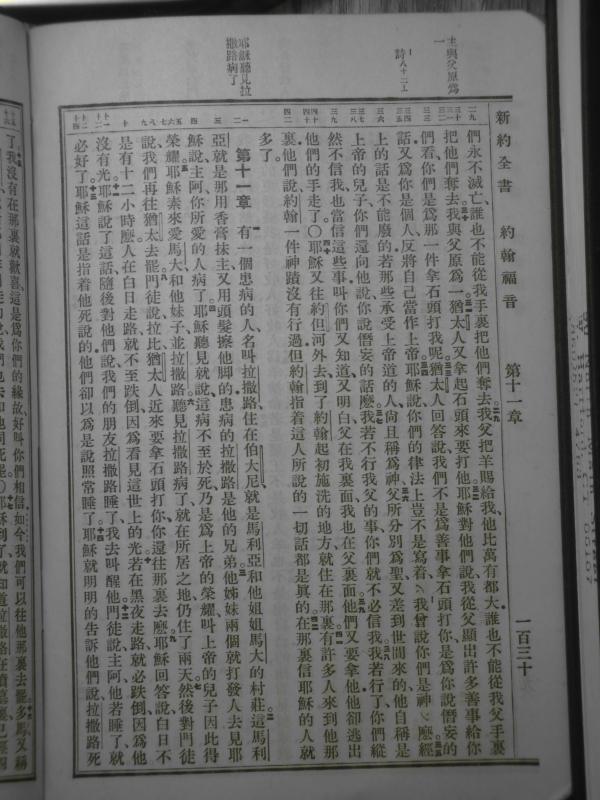 新約全書 約翰福音 第十一章 一百三十
主與父原爲一
詩八十二
耶穌聽見拉撒路病了
們永不滅亡誰也不能從我手裏把他們奪去我父把羊賜給我他比萬有都大誰也不能從我父手裏
把他們奪去我與父原爲一猶太人又拿起石頭來要打他耶穌對他們說我從父顯出許多善事給你
們看你們是爲那一件拿石頭打我呢猶太人回答說我們不是爲善事拿石頭打你是爲你說僭妄的
話又爲你是個人反將自己當作上帝耶穌說你們的律法上豈不是寫着我曾說你們是神麽經
上的話是不能廢的若那些承受上帝道的人尚且稱爲神父所分別爲聖又差到世間來的他自稱是
上帝的兒子你們還向他說你說僭妄的話麽我若不行我父的事你們就不必信我我若行了你們縱
然不信我也當信這些事叫你們又知道又明白父在我裏面我也在父裏面他們又要拿他他卻逃出
他們的手走了〇耶穌又往約但河外去到了約翰起初施洗的地方就住在那裏有許多人來到他那
裏他們說約翰一件神蹟沒有行過但約翰指着這人所說的一切話都是眞的在那裏信耶穌的人就
多了
第十一章 有一個患病的人名叫拉撒路住在伯大尼就是馬利亞和他姐姐馬大的村莊這馬利
亞就是那用香膏抹主又用頭髮擦他脚的患病的拉撒路是他的兄弟他姊妹兩個就打發人去見耶
穌說主阿你所愛的人病了耶穌聽見就說這病不至於死乃是爲上帝的榮耀叫上帝的兒子因此得
榮耀耶穌素來愛馬大和他妹子並拉撒路聽見拉撒路病了就在所居之地仍住了兩天然後對門徒
說我們再往猶太去罷門徒說拉比猶太人近來要拿石頭打你你還往那裏去麽耶穌回答說白日不
是有十二小時麽人在白日走路就不至跌倒因爲看見這世上的光若在黑夜走路就必跌倒因爲他
沒有光耶穌說了這話隨後對他們說我們的朋友拉撒路睡了我去叫醒他門徒說主阿他若睡了就
必好了耶穌這話是指着他死說的他們卻以爲是說照常睡了耶穌就明明的告訴他們說拉撒路死
了我沒有在那裏就歡喜這是爲你們的緣故好叫你們相信如今我們可以往他那裏去罷多馬又稱